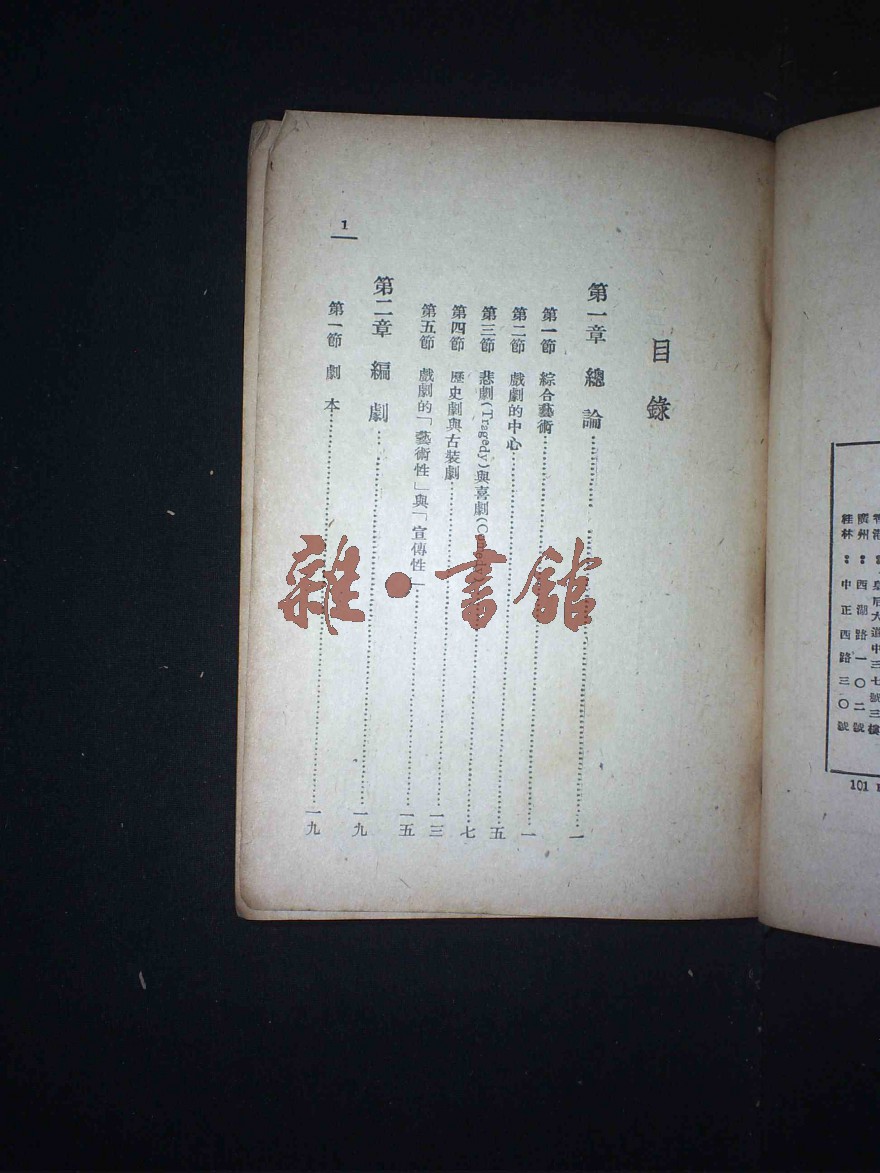 目錄
第一章 總論……一
第一節 綜合藝術……一
第二節 戲劇的中心……五
第三節 悲劇(Tragedy)與喜劇(Comedy)……七
第四節 歷史劇與古裝劇……一三
第五節 戲劇的「藝術性」與「宣傳性」……一五
第二章 編劇……一九
第一節 劇本……一九
1
雜·書館
皇后大道中三七號三樓
廣州：西湖路一〇二號
桂林：中正西路三〇號
101